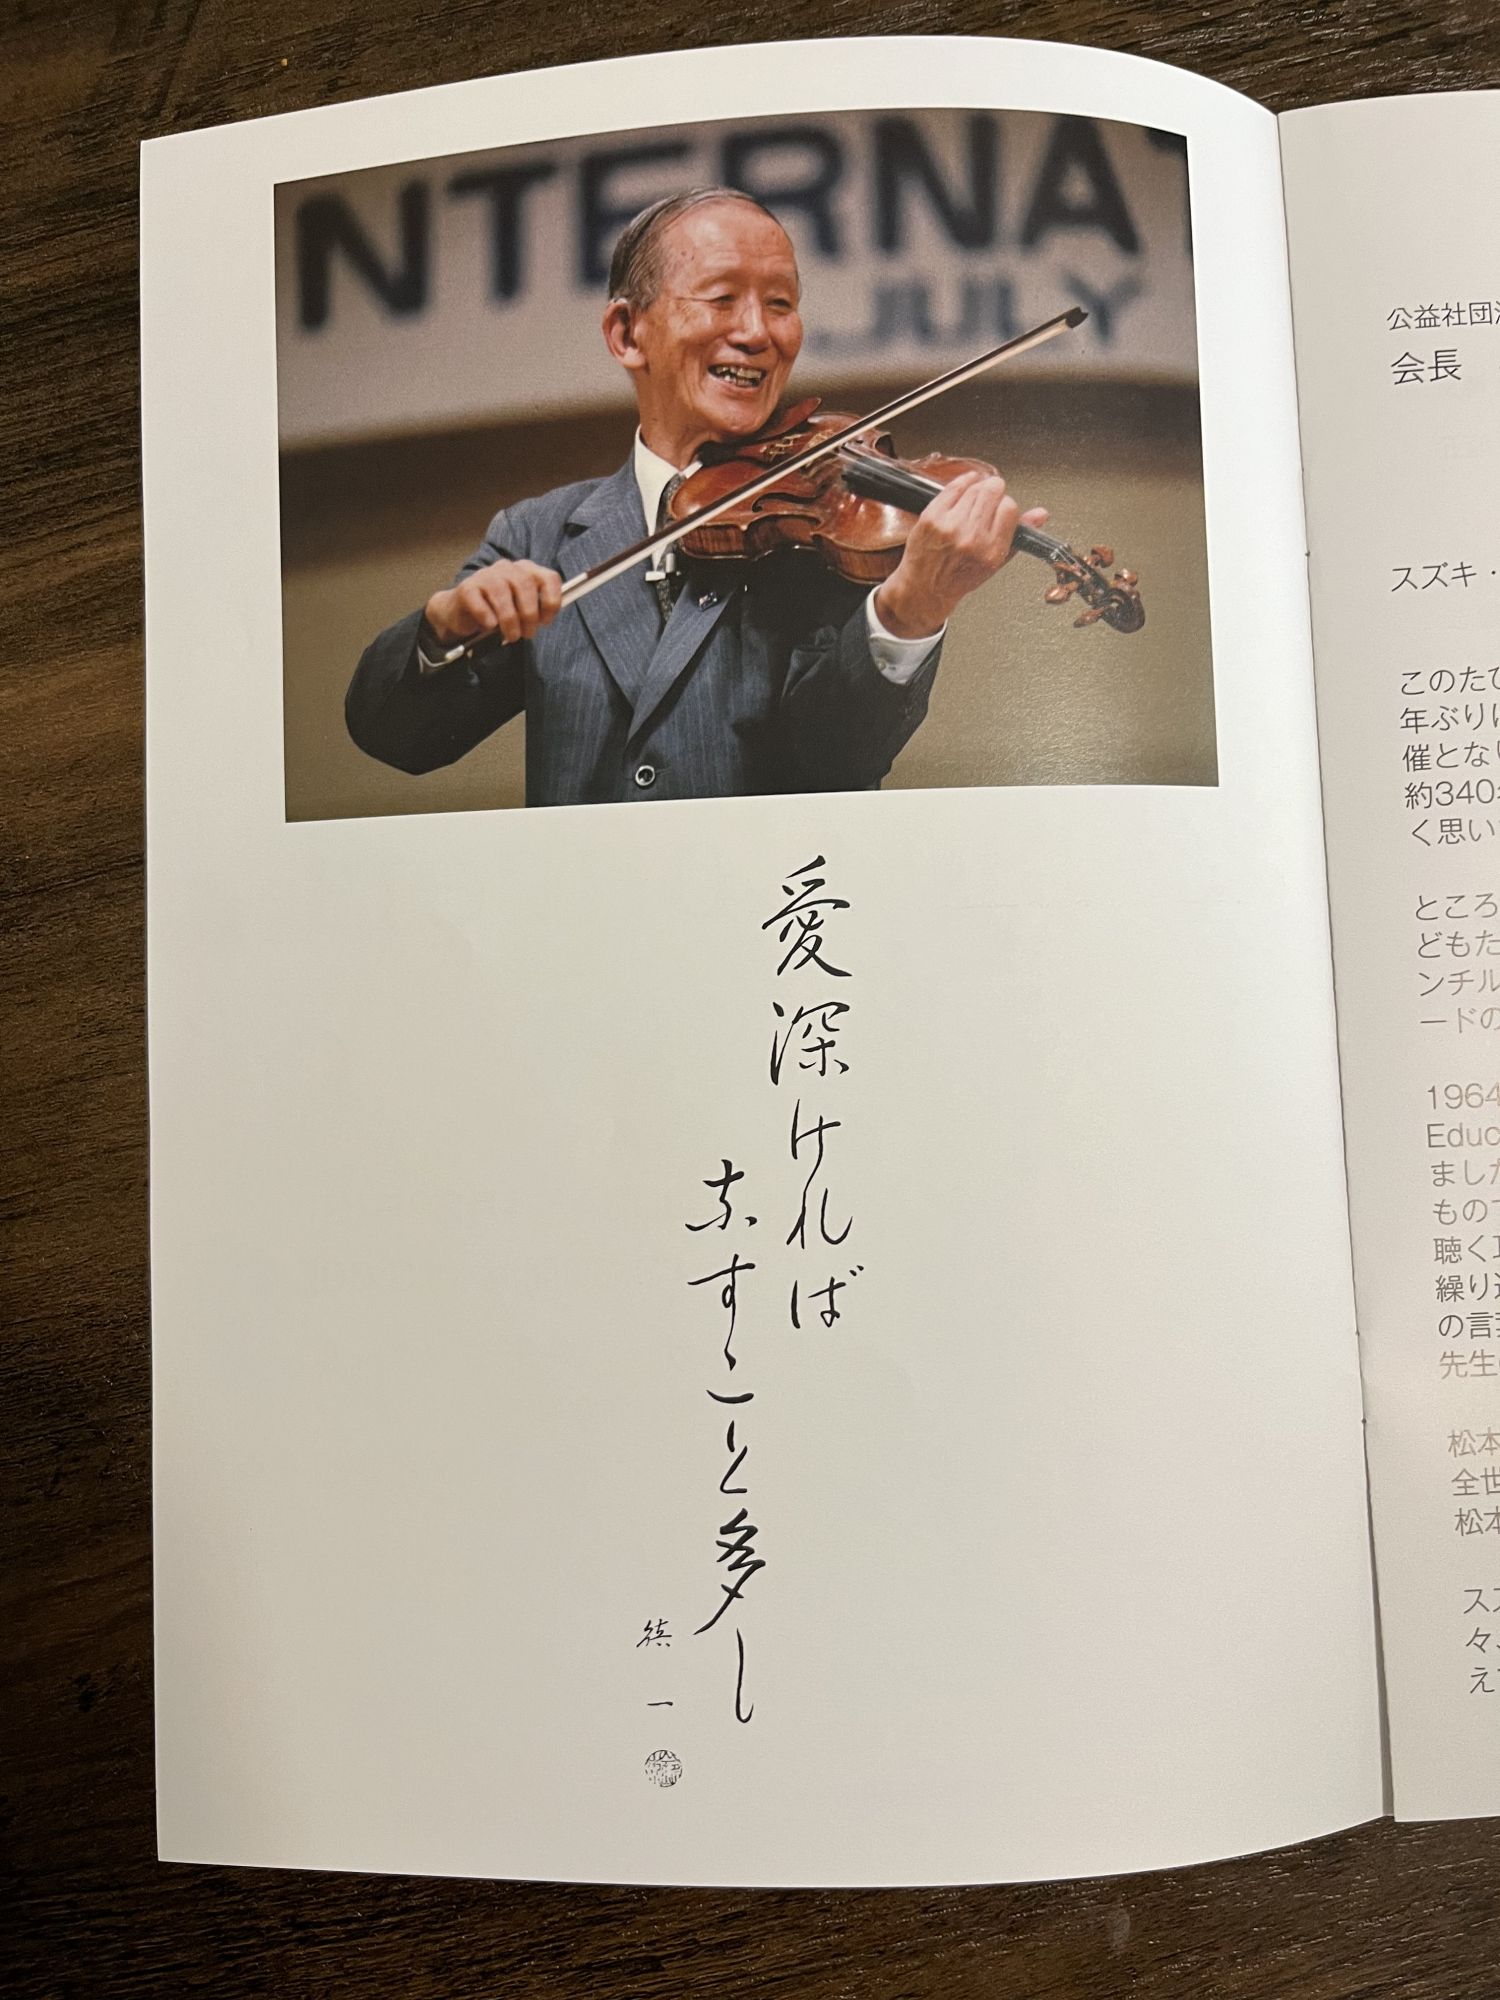 NTERNA
JULY
愛深ければ
なすこと多し
鎮一
公益社団
会長
スズキ・
このたび
年ぶりに
催となり
約340
く思い
ところ
どもた
ンチル
ードの
1964
Educ
ました
もので
聴く
繰り
の言
先生
松本
全世
松本
スス
々、
えて